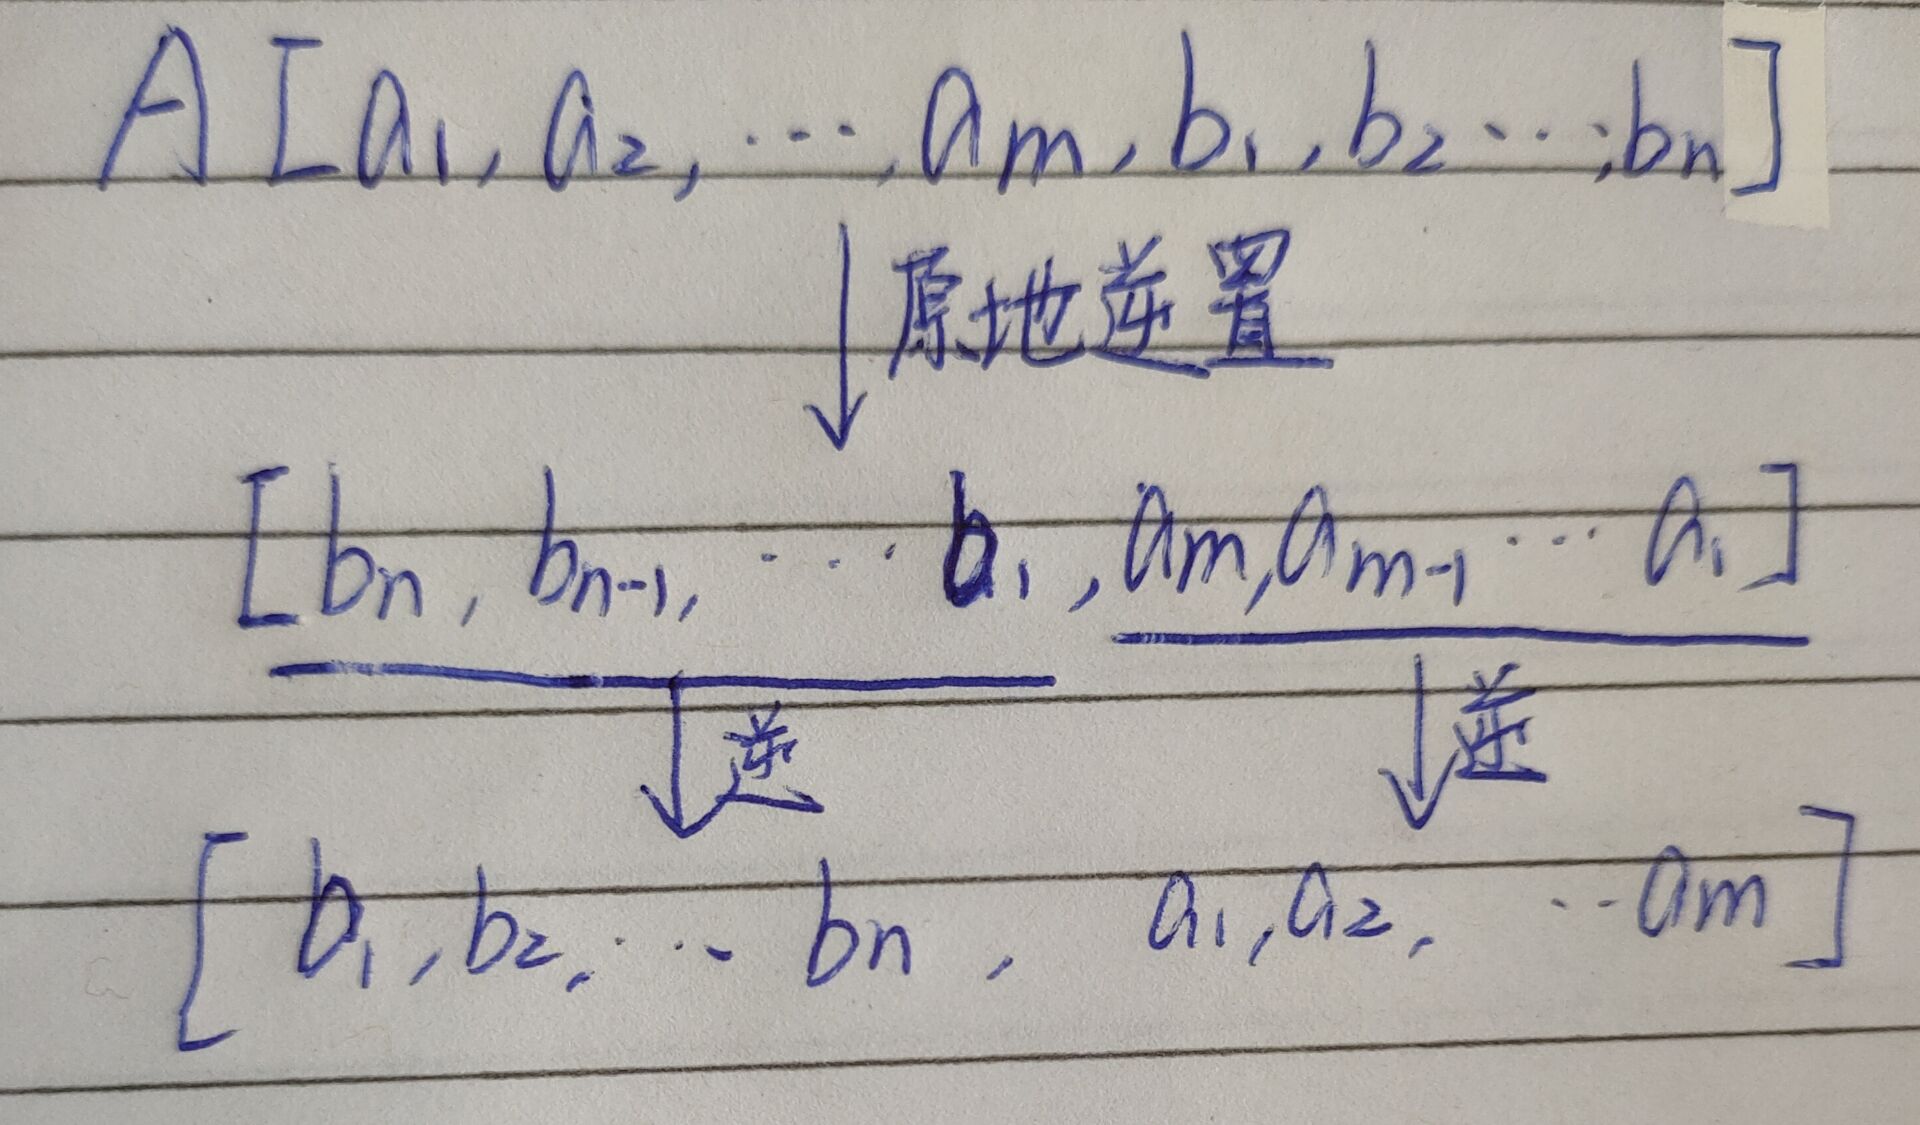 A[a₁, a₂, ···, aₘ, b₁, b₂ ···, bₙ]
原地逆置
[bₙ, bₙ₋₁, ··· b₁, aₘ, aₘ₋₁ ··· a₁]
逆 逆
[b₁, b₂, ··· bₙ, a₁, a₂, ··· aₘ]